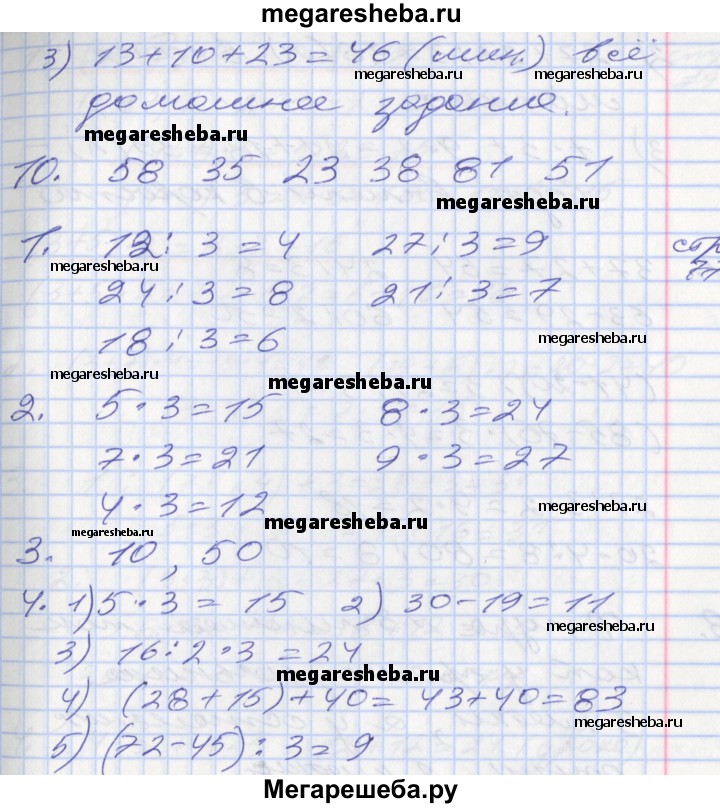 megaresheba.ru
3) 13+10+23=46 (мин.) всё
megaresheba.ru megaresheba.ru
домашнее задание.
megaresheba.ru
10. 58 35 23 38 81 51
megaresheba.ru
1. 12:3=4 27:3=9 стр
megaresheba.ru
24:3=8 21:3=7
18:3=6
megaresheba.ru
megaresheba.ru
megaresheba.ru
2. 5·3=15 8·3=24
7·3=21 9·3=27
4·3=12
megaresheba.ru
megaresheba.ru
megaresheba.ru
3. 10, 50
4. 1) 5·3=15 2) 30-19=11
megaresheba.ru
3) 16:2·3=24
megaresheba.ru
4) (28+15)+40=43+40=83
megaresheba.ru
5) (72-45):3=9
Мегарешеба.ру